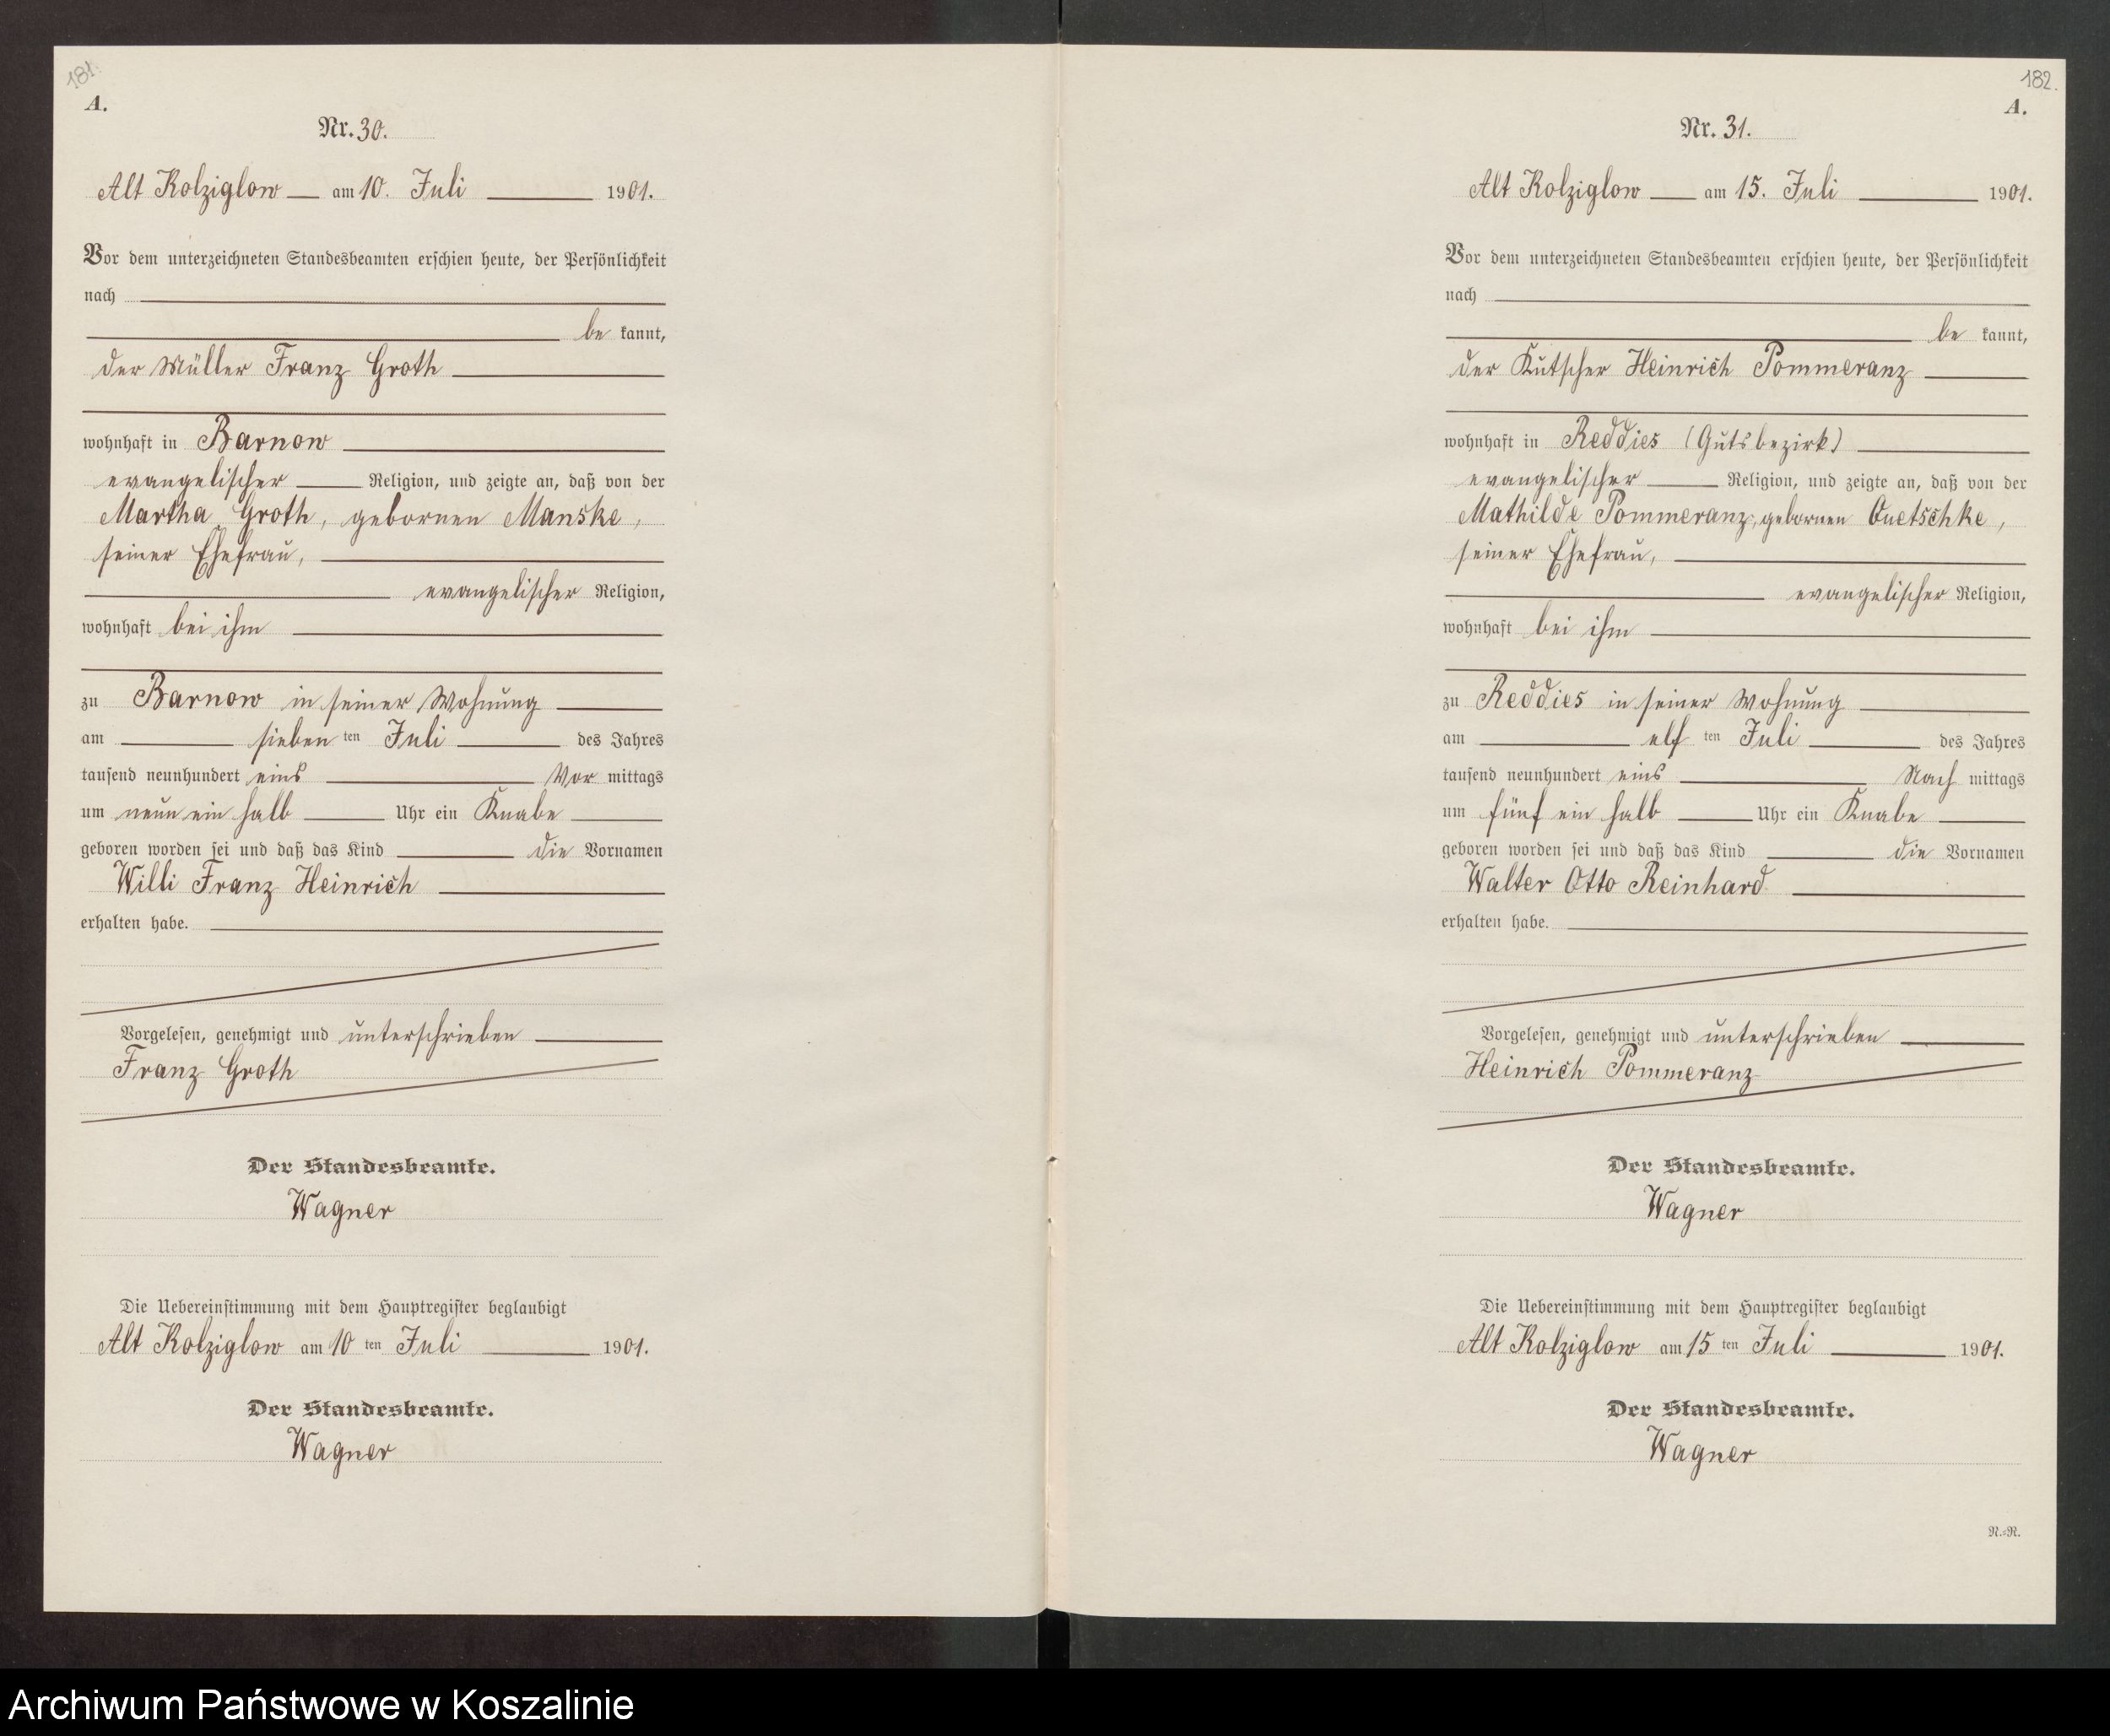 181.
A.
Nr. 30.
Alt Kolziglow am 10. Juli 1901.
Vor dem unterzeichneten Standesbeamten erschien heute, der Persönlichkeit
nach
be kannt,
der Müller Franz Groth
wohnhaft in Barnow
evangelischer Religion, und zeigte an, daß von der
Martha Groth, gebornen Manske,
seiner Ehefrau,
evangelischer Religion,
wohnhaft bei ihm
zu Barnow in seiner Wohnung
am sieben ten Juli des Jahres
tausend neunhundert eins Vor mittags
um neun ein halb Uhr ein Knabe
geboren worden sei und daß das Kind die Vornamen
Willi Franz Heinrich
erhalten habe.
Vorgelesen, genehmigt und unterschrieben
Franz Groth
Der Standesbeamte.
Wagner
Die Uebereinstimmung mit dem Hauptregister beglaubigt
Alt Kolziglow am 10 ten Juli 1901.
Der Standesbeamte.
Wagner
182.
A.
Nr. 31.
Alt Kolziglow am 15. Juli 1901.
Vor dem unterzeichneten Standesbeamten erschien heute, der Persönlichkeit
nach
be kannt,
der Kutscher Heinrich Pommeranz
wohnhaft in Reddies (Gutsbezirk)
evangelischer Religion, und zeigte an, daß von der
Mathilde Pommeranz, gebornen Quetschke,
seiner Ehefrau,
evangelischer Religion,
wohnhaft bei ihm
zu Reddies in seiner Wohnung
am elf ten Juli des Jahres
tausend neunhundert eins Nach mittags
um fünf ein halb Uhr ein Knabe
geboren worden sei und daß das Kind die Vornamen
Walter Otto Reinhard
erhalten habe.
Vorgelesen, genehmigt und unterschrieben
Heinrich Pommeranz
Der Standesbeamte.
Wagner
Die Uebereinstimmung mit dem Hauptregister beglaubigt
Alt Kolziglow am 15 ten Juli 1901.
Der Standesbeamte.
Wagner
N.=R.
Archiwum Państwowe w Koszalinie